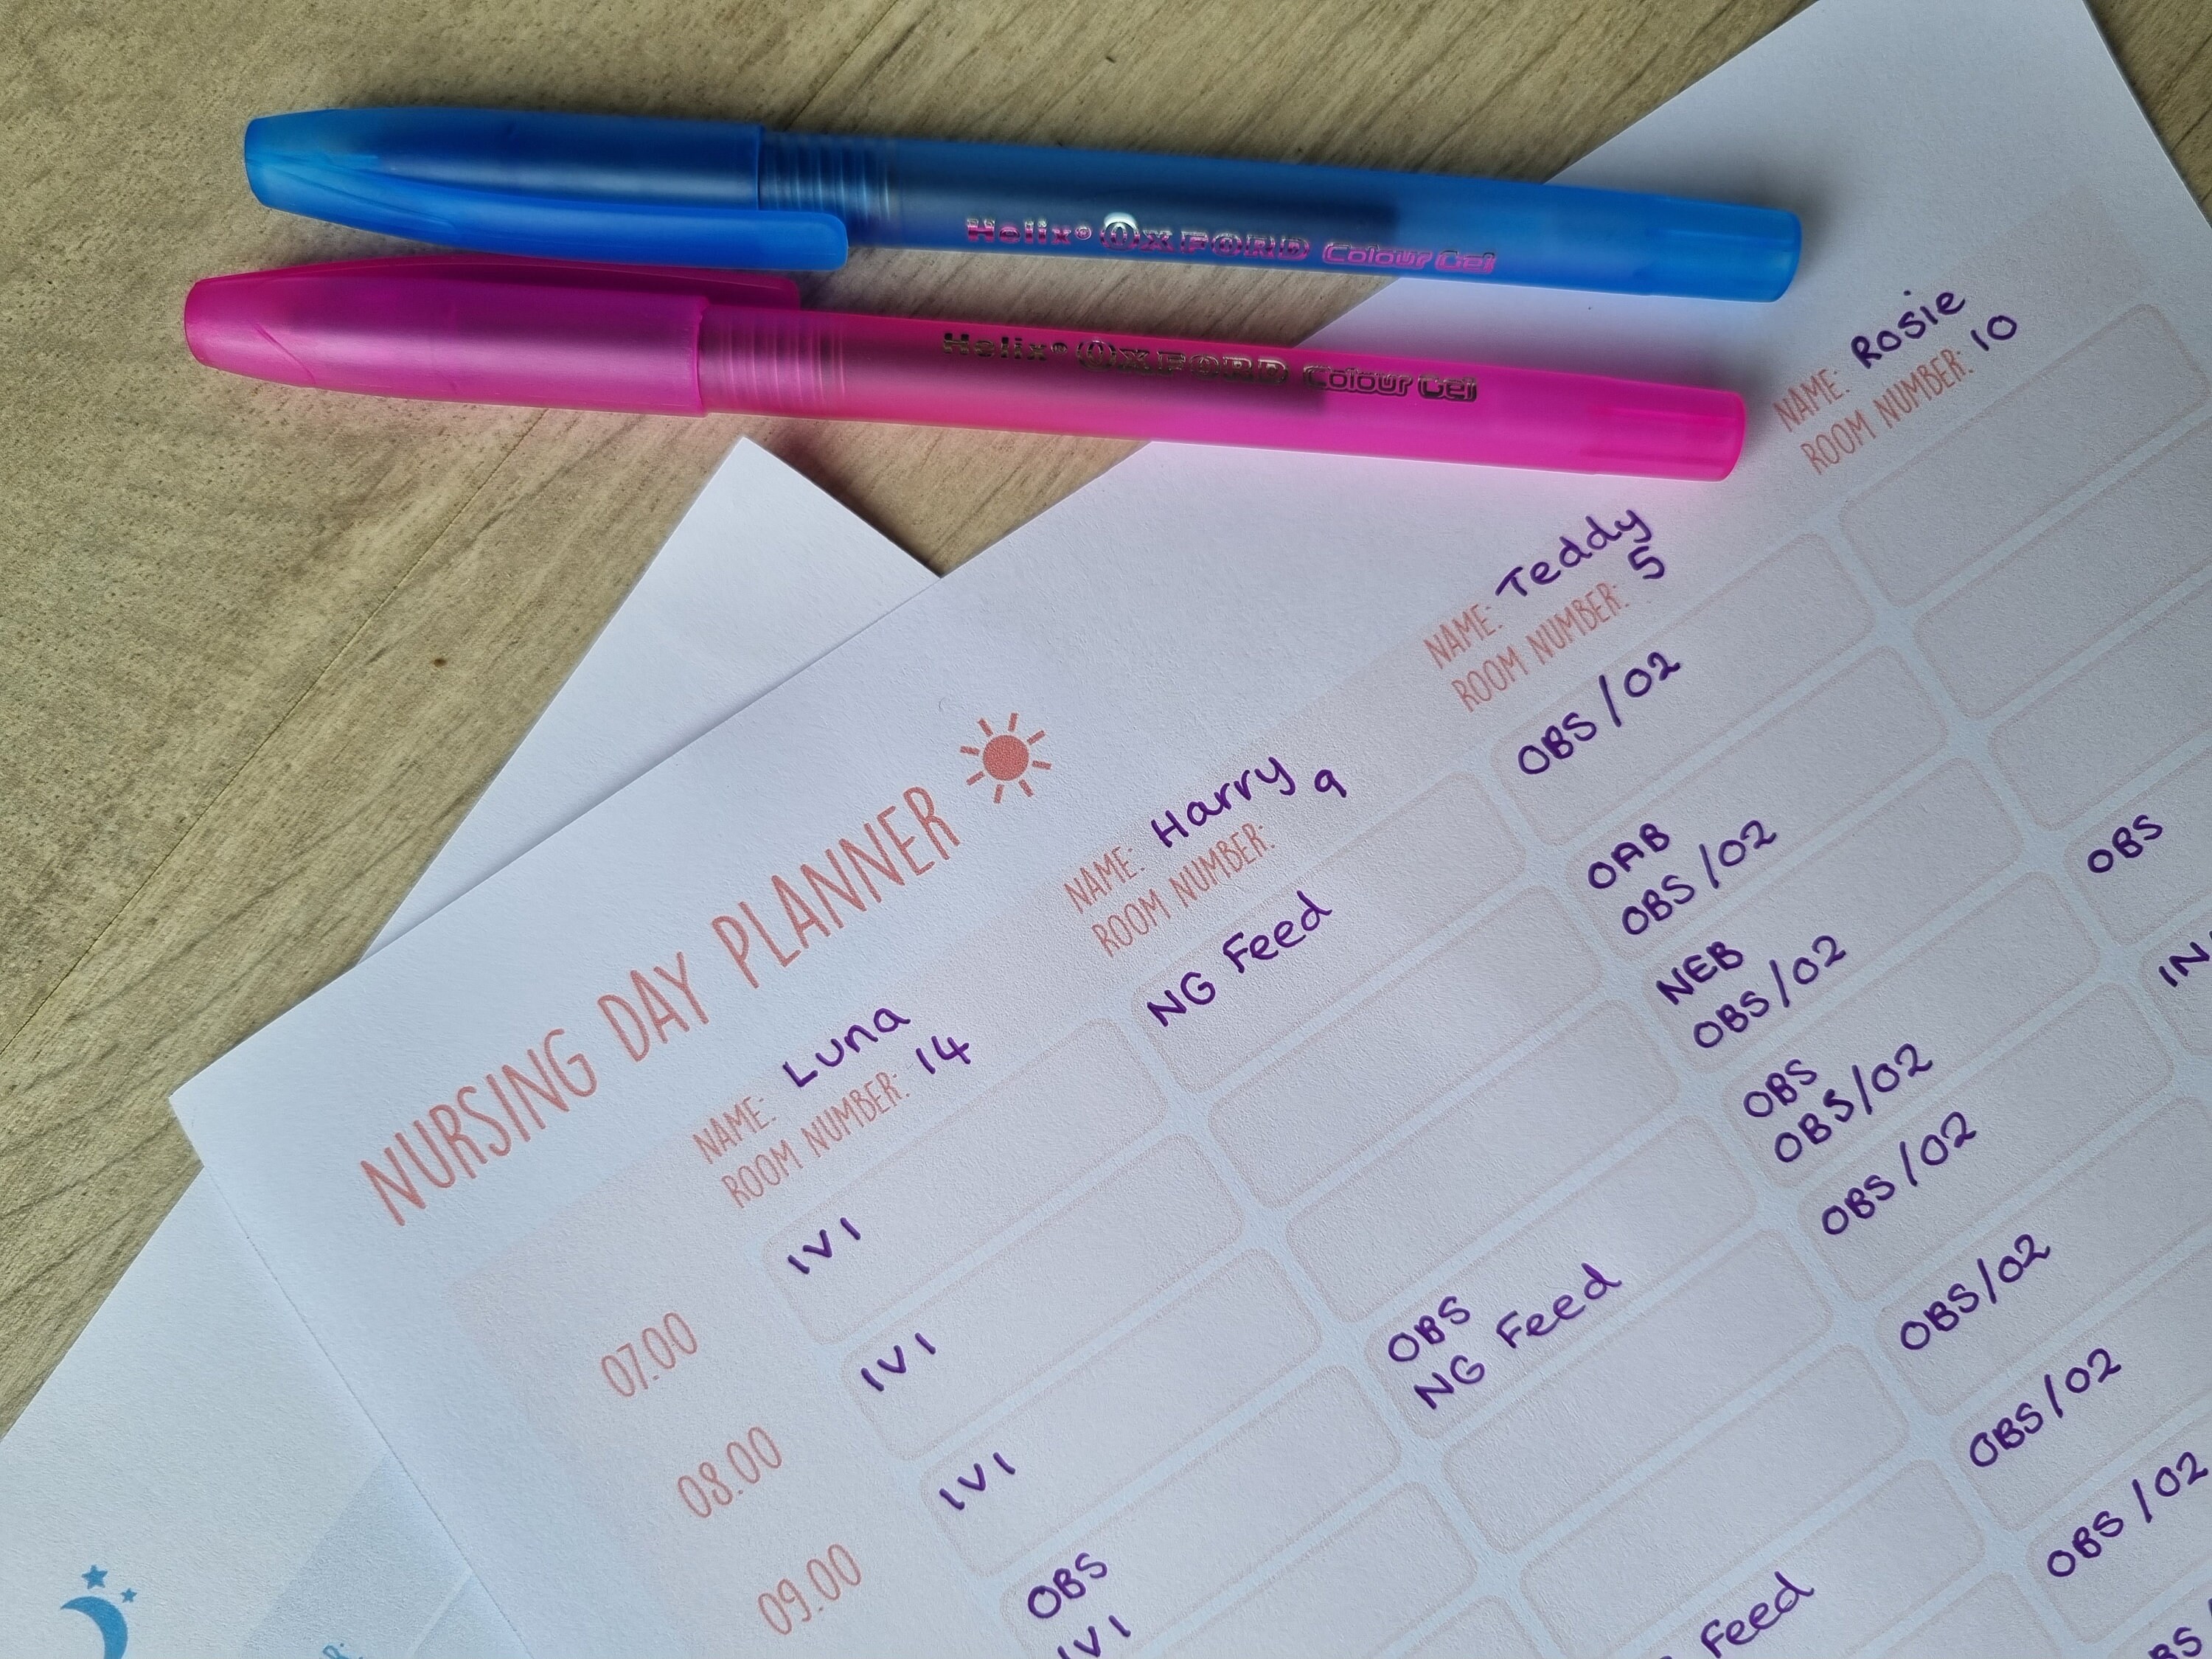 Helix® OXFORD Colour Gel
Helix® OXFORD Colour Gel
NURSING DAY PLANNER
NAME: Luna
ROOM NUMBER: 14
NAME: Harry
ROOM NUMBER: 9
NAME: Teddy
ROOM NUMBER: 5
NAME: Rosie
ROOM NUMBER: 10
07.00
IVI
NG Feed
OBS/02
08.00
IVI
OAB
OBS/02
09.00
IVI
NEB
OBS/02
OBS
IVI
OBS
NG Feed
OBS
OBS/02
OBS
OBS/02
OBS/02
Feed
OBS/02
OBS/02